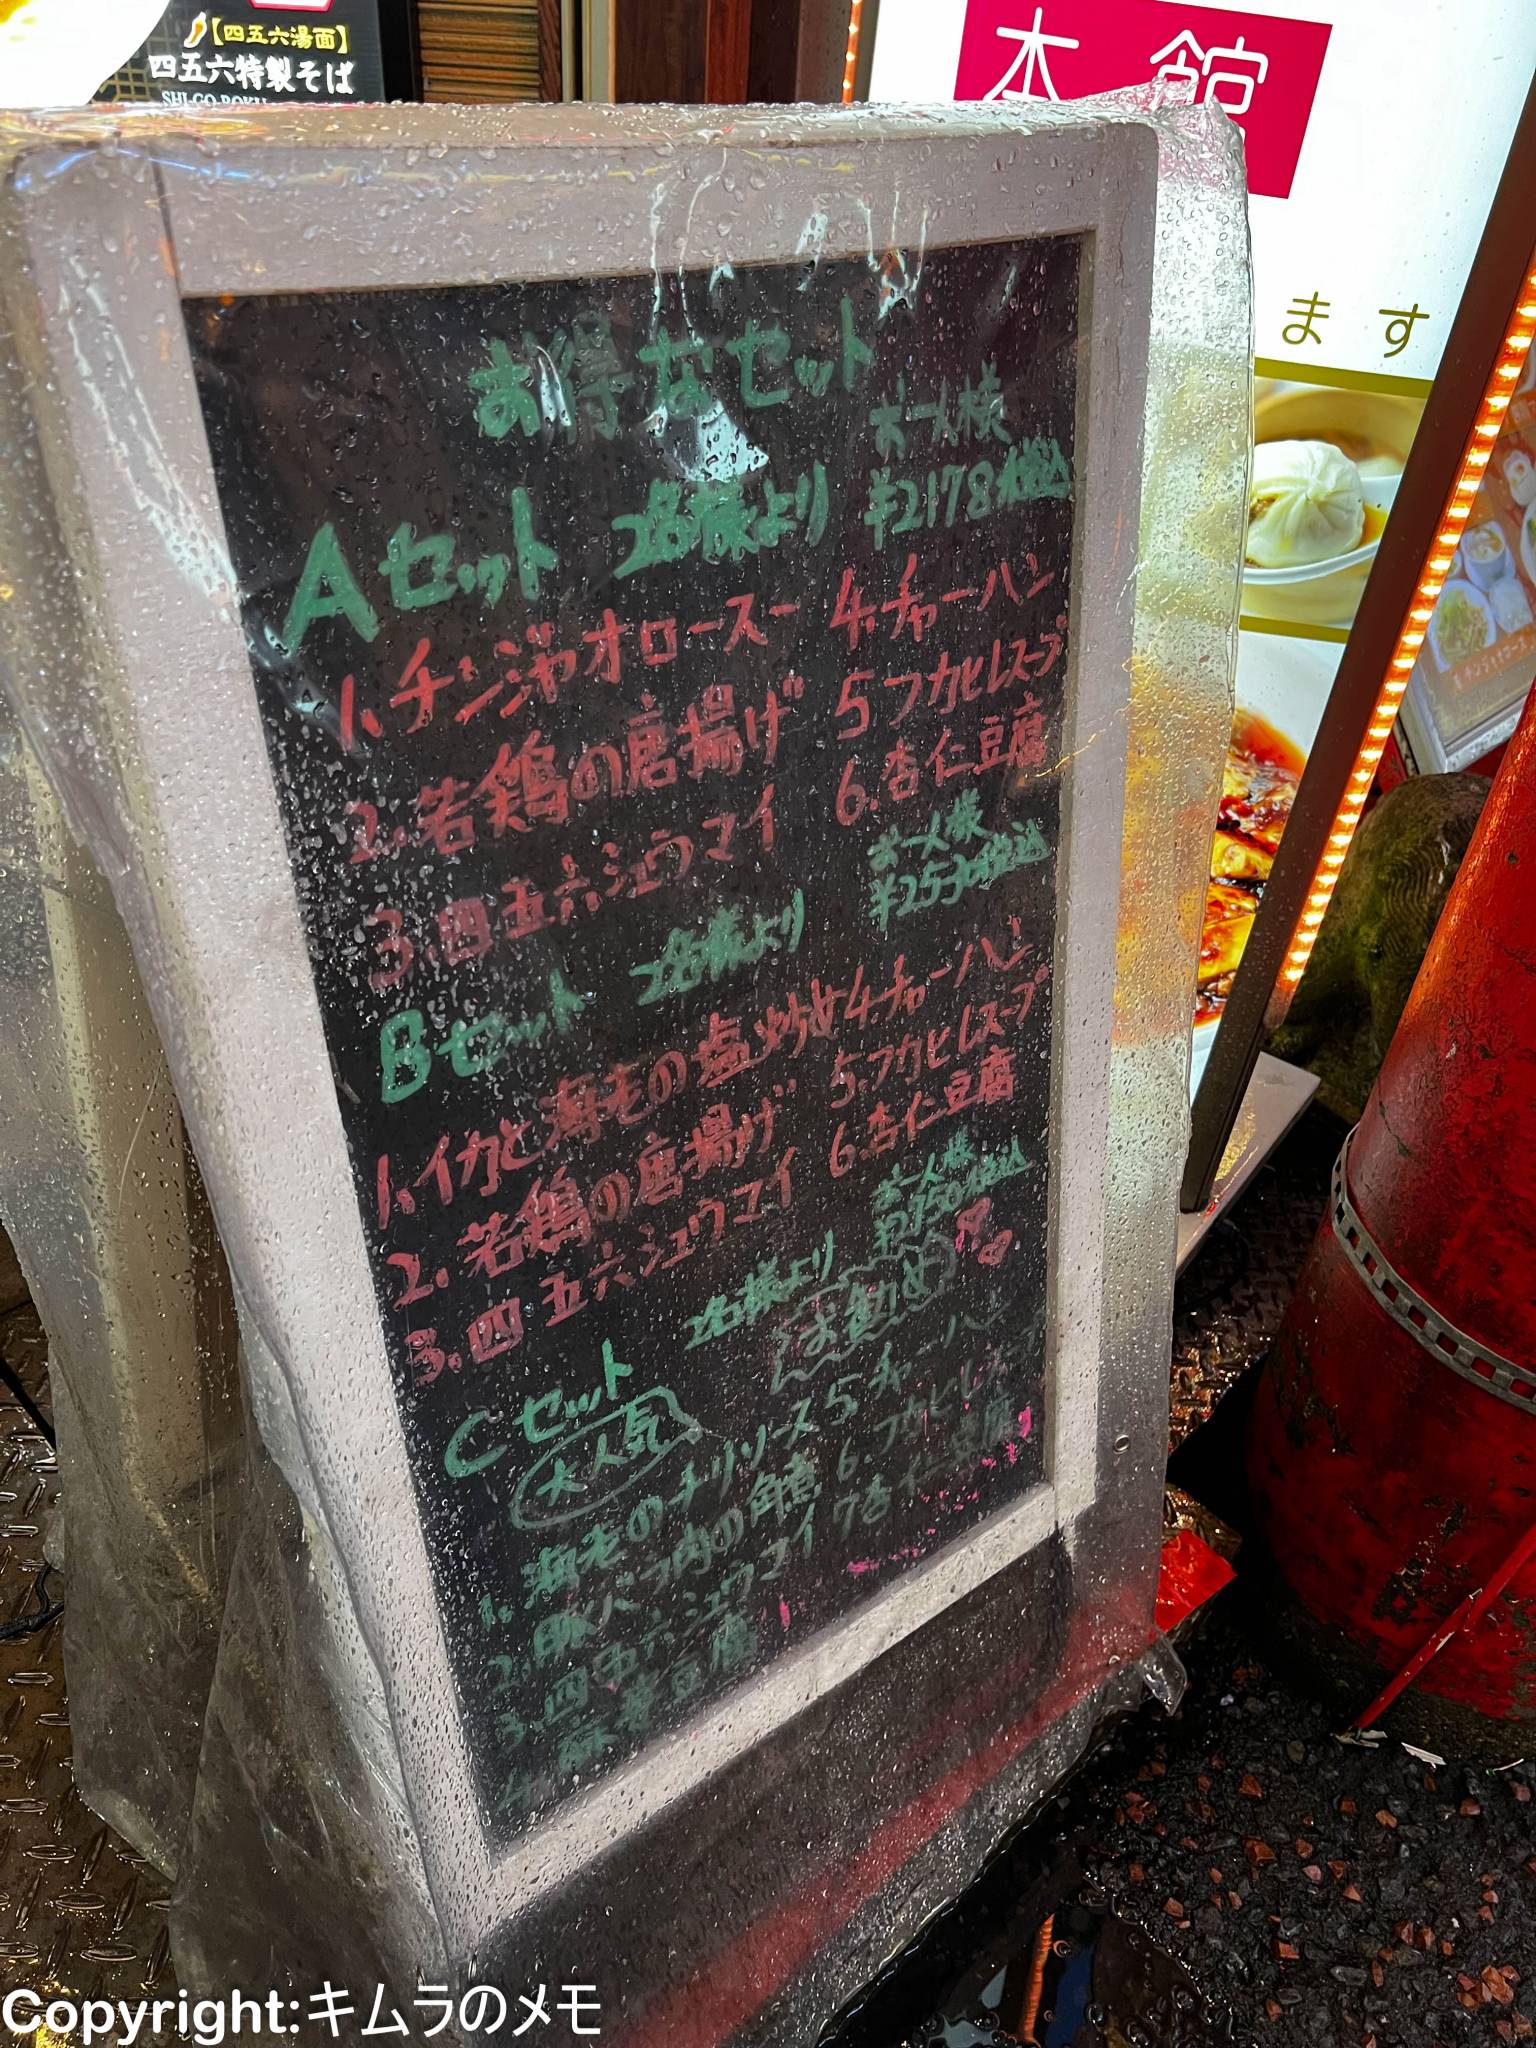 【四五六湯面】
四五六特製そば
SHI-GO-ROKU
本館
ます
お得なセット
Aセット 2名様より お一人様 ¥2178税込
1.チンジャオロース― 4.チャーハン
2.若鶏の唐揚げ 5フカヒレスープ
3.四五六シュウマイ 6.杏仁豆腐
Bセット 2名様より お一人様 ¥2530税込
1.イカと海老の塩炒め 4.チャーハン
2.若鶏の唐揚げ 5.フカヒレスープ
3.四五六シュウマイ 6.杏仁豆腐
Cセット 2名様より お一人様 ¥2750税込
大人気 お勧め
1.海老のチリソース 5チャーハン
2.豚バラ肉の角煮 6.フカヒレスープ
3.四五六シュウマイ 7杏仁豆腐
4.麻婆豆腐
Copyright:キムラのメモ